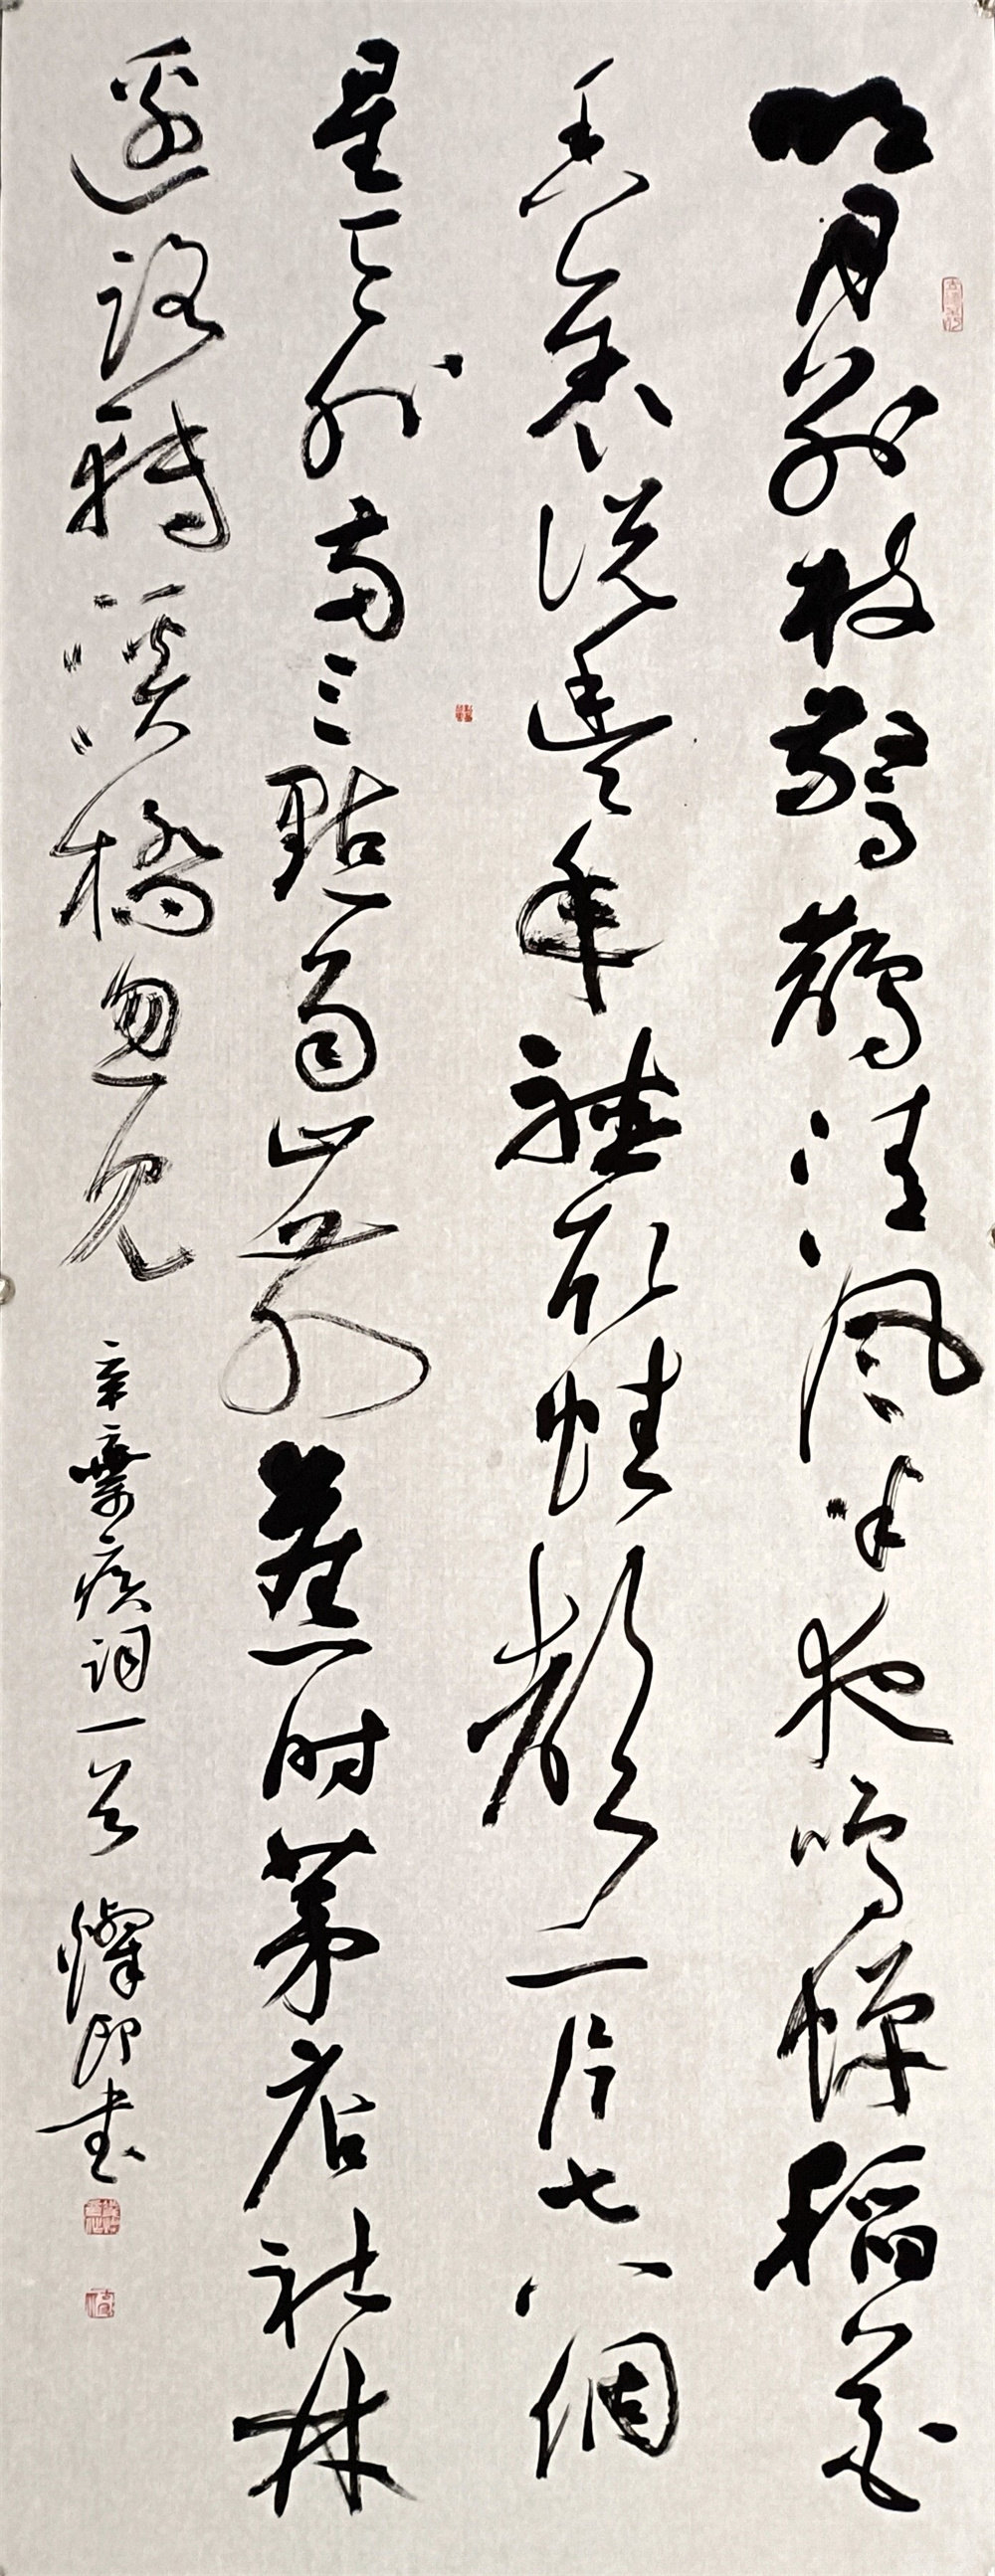 明月別枝驚鵲清風半夜鳴蟬稻花
香裏説豐年聽取蛙聲一片七八個
星天外兩三點雨山前舊時茅店社林
邊路轉溪橋忽見 辛棄疾詞一首 書